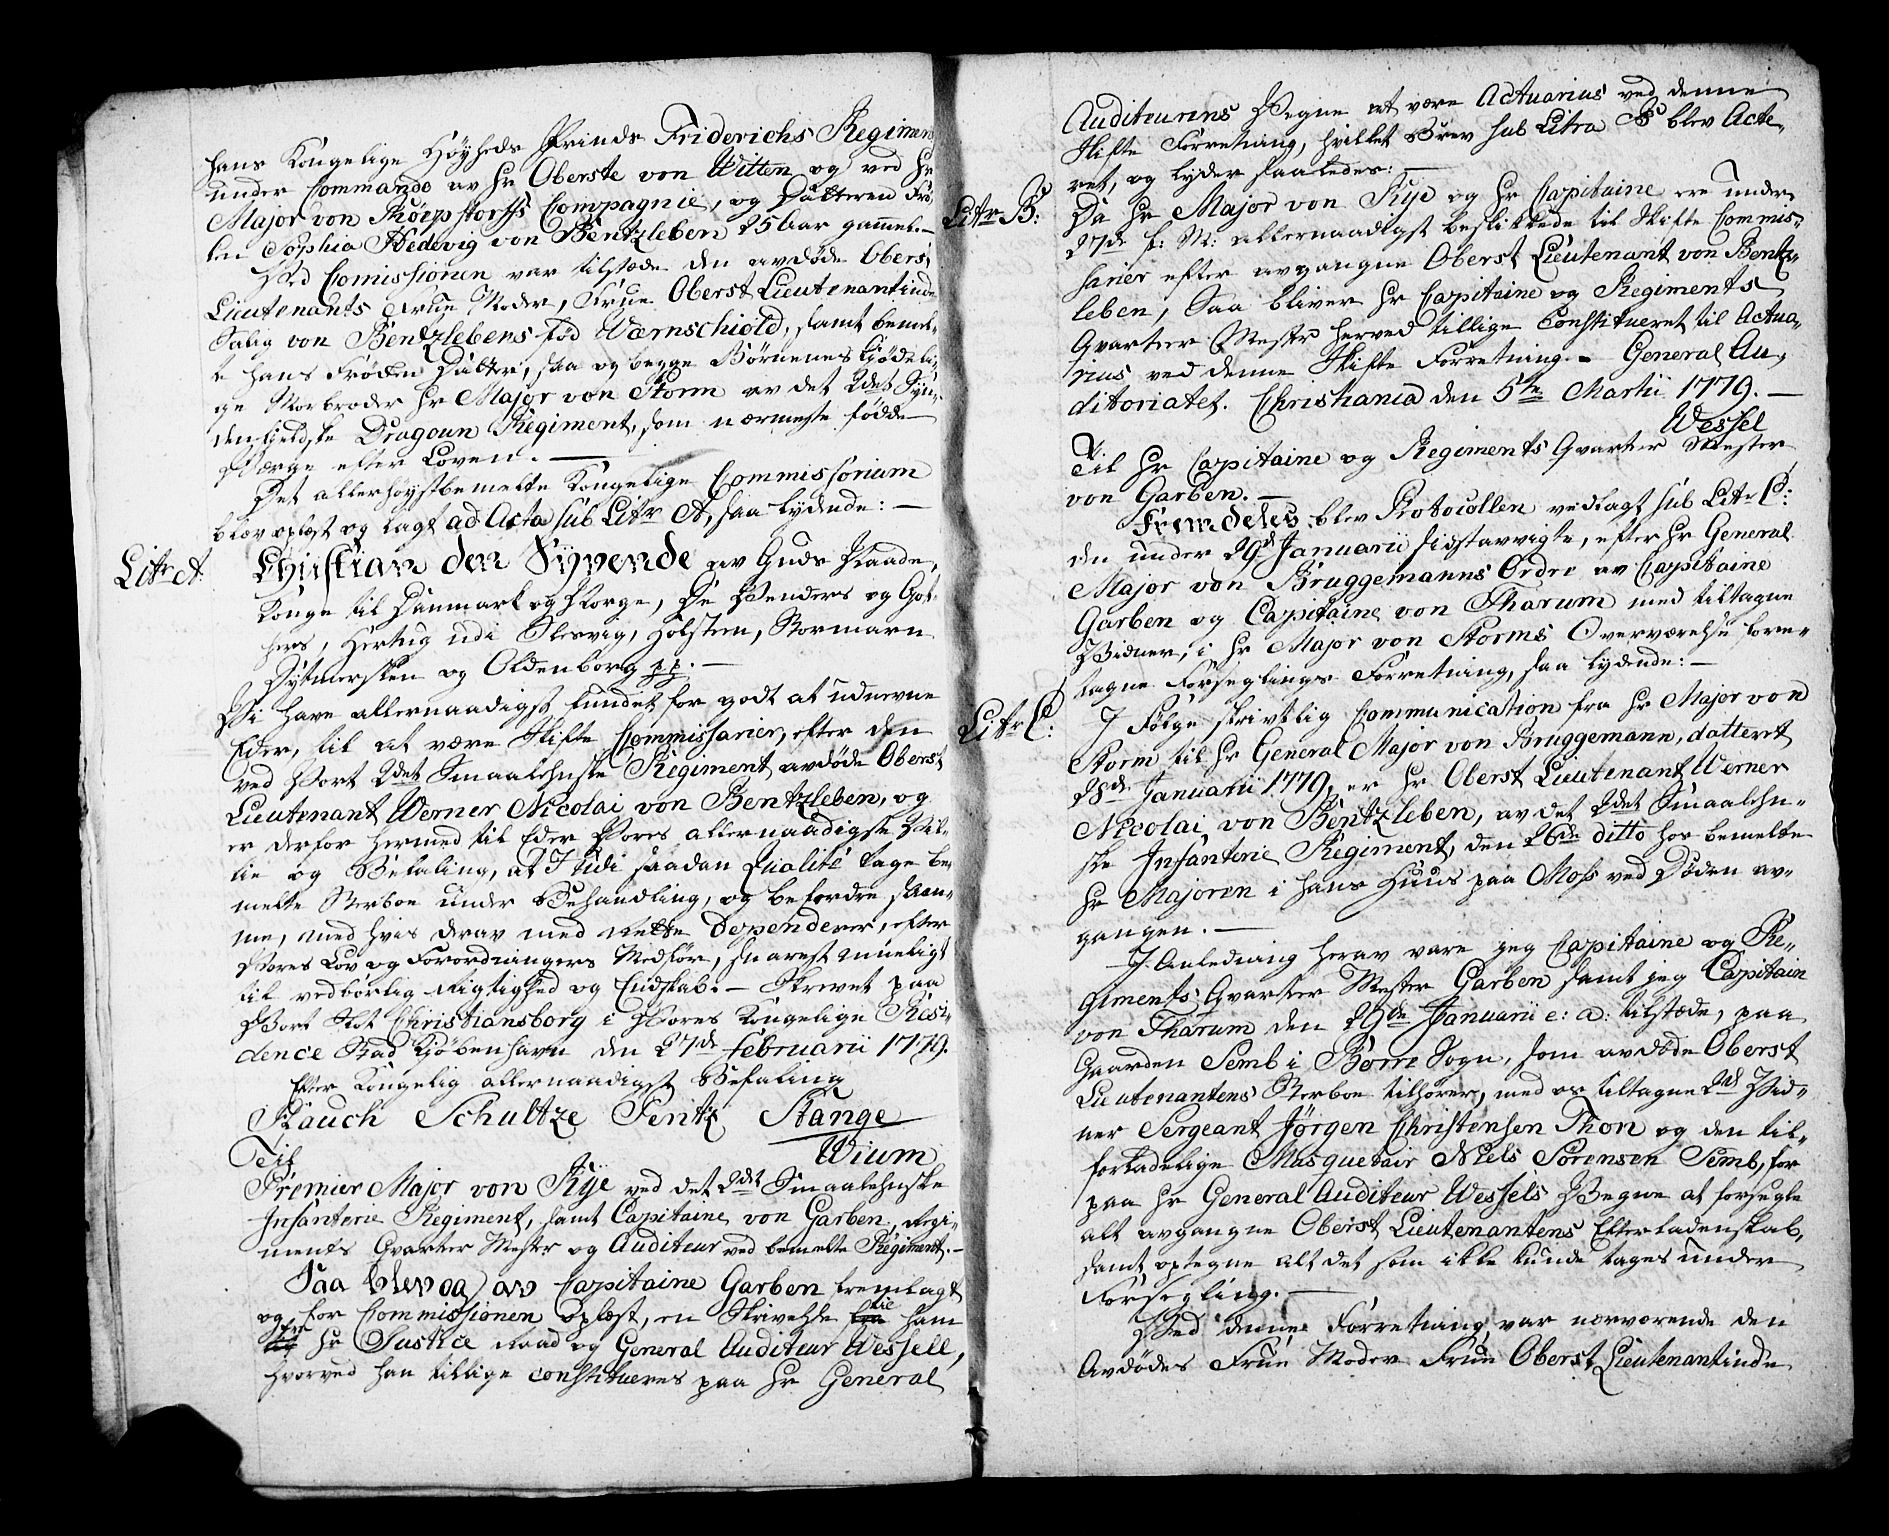 hans Kongelige Høyheds Prinds Friderichs Regiment
under Commando av Hr Oberste von Witten og ved Hr
Major von Thörpstorffs Compagnie, og Datteren Frø-
ken Sophia Hedevig von Bentzleben 25 Aar gammel.—
Ved Comissionen var tilstæde den avdøde Oberst
Lieutenants Frue Moder, Frue Oberst Lieutenantinde
Salig von Bentzlebens fød Wærnschiold, samt bemel-
te hans Frøken Datter, saa og begge Børnenes kiødeli-
ge Morbroder Hr Major von Storm av det 2det Syn-
denfieldske Dragoun Regiment, som nærmeste fødde
Værge efter Loven.—
Det allerhøystbemelte Kongelige Commissorium
blev oplæst og lagt ad Acta sub Litr A, saa lydende:—
Litr A:
Christian den Syvende av Guds Naade,
Konge til Danmark og Norge, De Venders og Got-
hers, Hertug udi Slesvig, Holsteen, Stormarn
Dytmersken og Oldenborg pp.—
Vi have allernaadigst fundet for godt at udnevne
Eder, til at være Skifte Commissarier, efter den
ved Vort 2det Smaalehnske Regiment avdøde Oberst
Lieutenant Werner Nicolai von Bentzleben, og
er derfor hermed til Eder Vores allernaadigste Vil-
lie og Befaling, at I udi saadan Qualité tage be-
melte Sterboe under Behandling, og befordre sam-
me, med hvis derav med rette Dependerer, efter
Vores Lov og Forordningers Medfør, snarest mueligt
til vedbørlig Rigtighed og Endskab.— Skrevet paa
Vort Slot Christiansborg i Vores Kongelige Resi-
dence Stad Kiøbenhavn den 27de Februarii 1779.
Efter Kongelig allernaadigst Befaling
Rauch Schultze Feritz Stange
Wium
Til
Premier Major von Rÿe ved det 2det Smaalehnske
Infanterie Regiment, samt Capitaine von Garben, Regi-
ments Qvarter Mester og Auditeur ved bemelte Regiment.—
Saa blev og av Capitaine Garben fremlagt
og for Commissionen oplæst, en Skrivelse til ham
fra Hr Justice Raad og General Auditeur Wessell,
hvorved han tillige constitueres paa Hr General
Auditeurens Vegne at være Actuarius ved denne
Skifte Forretning, hvilket Brev sub Litra B blev Acte-
ret, og lyder saaledes:—
Litr B:
Da Hr Major von Rye og Hr Capitaine ere under
27de f: M: allernaadigst beskikkede til Skifte Commis-
sarier efter avgangne Oberst Lieutenant von Bentz-
leben, Saa bliver Hr Capitaine og Regiments
Qvarteer Mester herved tillige Constitueret til Actua-
rius ved denne Skifte Forretning.— General Au-
ditoriatet. Christiania den 5te Martii 1779.—
Wessel
Til Hr Capitaine og Regiments Qvarter Mester
von Garben.—
Fremdeles blev Protocollen vedlagt sub Litr C:
den under 29de Januarii sidstavvigte, efter Hr General
Major von Bruggemanns Ordre av Capitaine
Garben og Capitaine von Tharum med tiltagne
Vidner, i Hr Major von Storms Overværelse fore-
tagne Forseglings Forretning, saa lydende:—
Litr C:
I Følge skrivtlig Communication fra Hr Major von
Storm til Hr General Major von Bruggemann, datteret
28de Januarii 1779, er Hr Oberst Lieutenant Werner
Nicolai von Bentzleben, av det 2det Smaalehn-
ske Infanterie Regiment, den 26de ditto hos bemelte
Hr Majoren i hans Huus paa Moss ved Døden av-
gangen.—
I Anledning herav vare jeg Capitaine og Re-
giments Qvarter Mester Garben samt jeg Capitain
von Tharum den 29de Januarii e: a: tilstæde, paa
Gaarden Semb i Børre Sogn, som avdøde Oberst
Lieutenantens Sterboe tilhører, med os tiltagne 2de Vid-
ner Sergeant Jörgen Christensen Thon og den til-
forladelige Musquetair Niels Sörensen Semb, for
paa Hr General Auditeur Wessels Vegne at forsegle
alt avgangne Oberst Lieutenantens Efterladenskab,
samt optegne alt det som ikke kunde tages under
Forsegling.—
Ved denne Forretning var nærværende den
Avdødes Frue Moder Frue Oberst Lieutenantinde